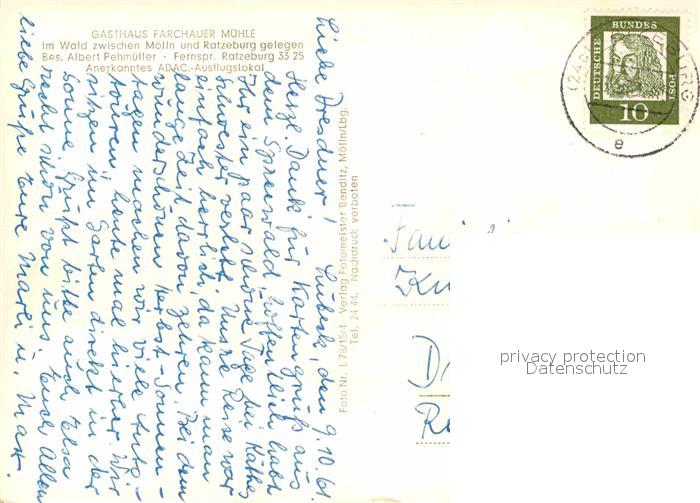 GASTHAUS FARCHAUER MÜHLE
im Wald zwischen Mölln und Ratzeburg gelegen
Bes. Albert Pehmüller · Fernspr. Ratzeburg 33 25
Anerkanntes ADAC-Ausflugslokal
Lübeck, den 9.10.61
Liebe Dresdner!
Herzl. Dank für Kartengruß aus
dem Spreewald. Hoffentlich habt
Ihr ein paar schöne Tage bei Käthes
Schwester verlebt. Unsre Reise war
einfach herrlich, da kann man
lange Zeit davon zehren. Bei dem
wunderschönen Herbst-Sonnen-
tagen machen wir viele Auto-
touren, heute mal hierher. Wir
sitzen im Garten direkt in der
Sonne. Grüßt bitte auch Elsa
recht schön von uns. Euch allen
liebe Grüße Eure Marei u. Max.
Foto Nr. L 78/15/4 Verlag Fotomeister Benditz, Mölln/Lbg.
Tel. 24 44. Nachdruck verboten
DEUTSCHE
BUNDES
POST
10
e
Fam
D
privacy protection
Datenschutz